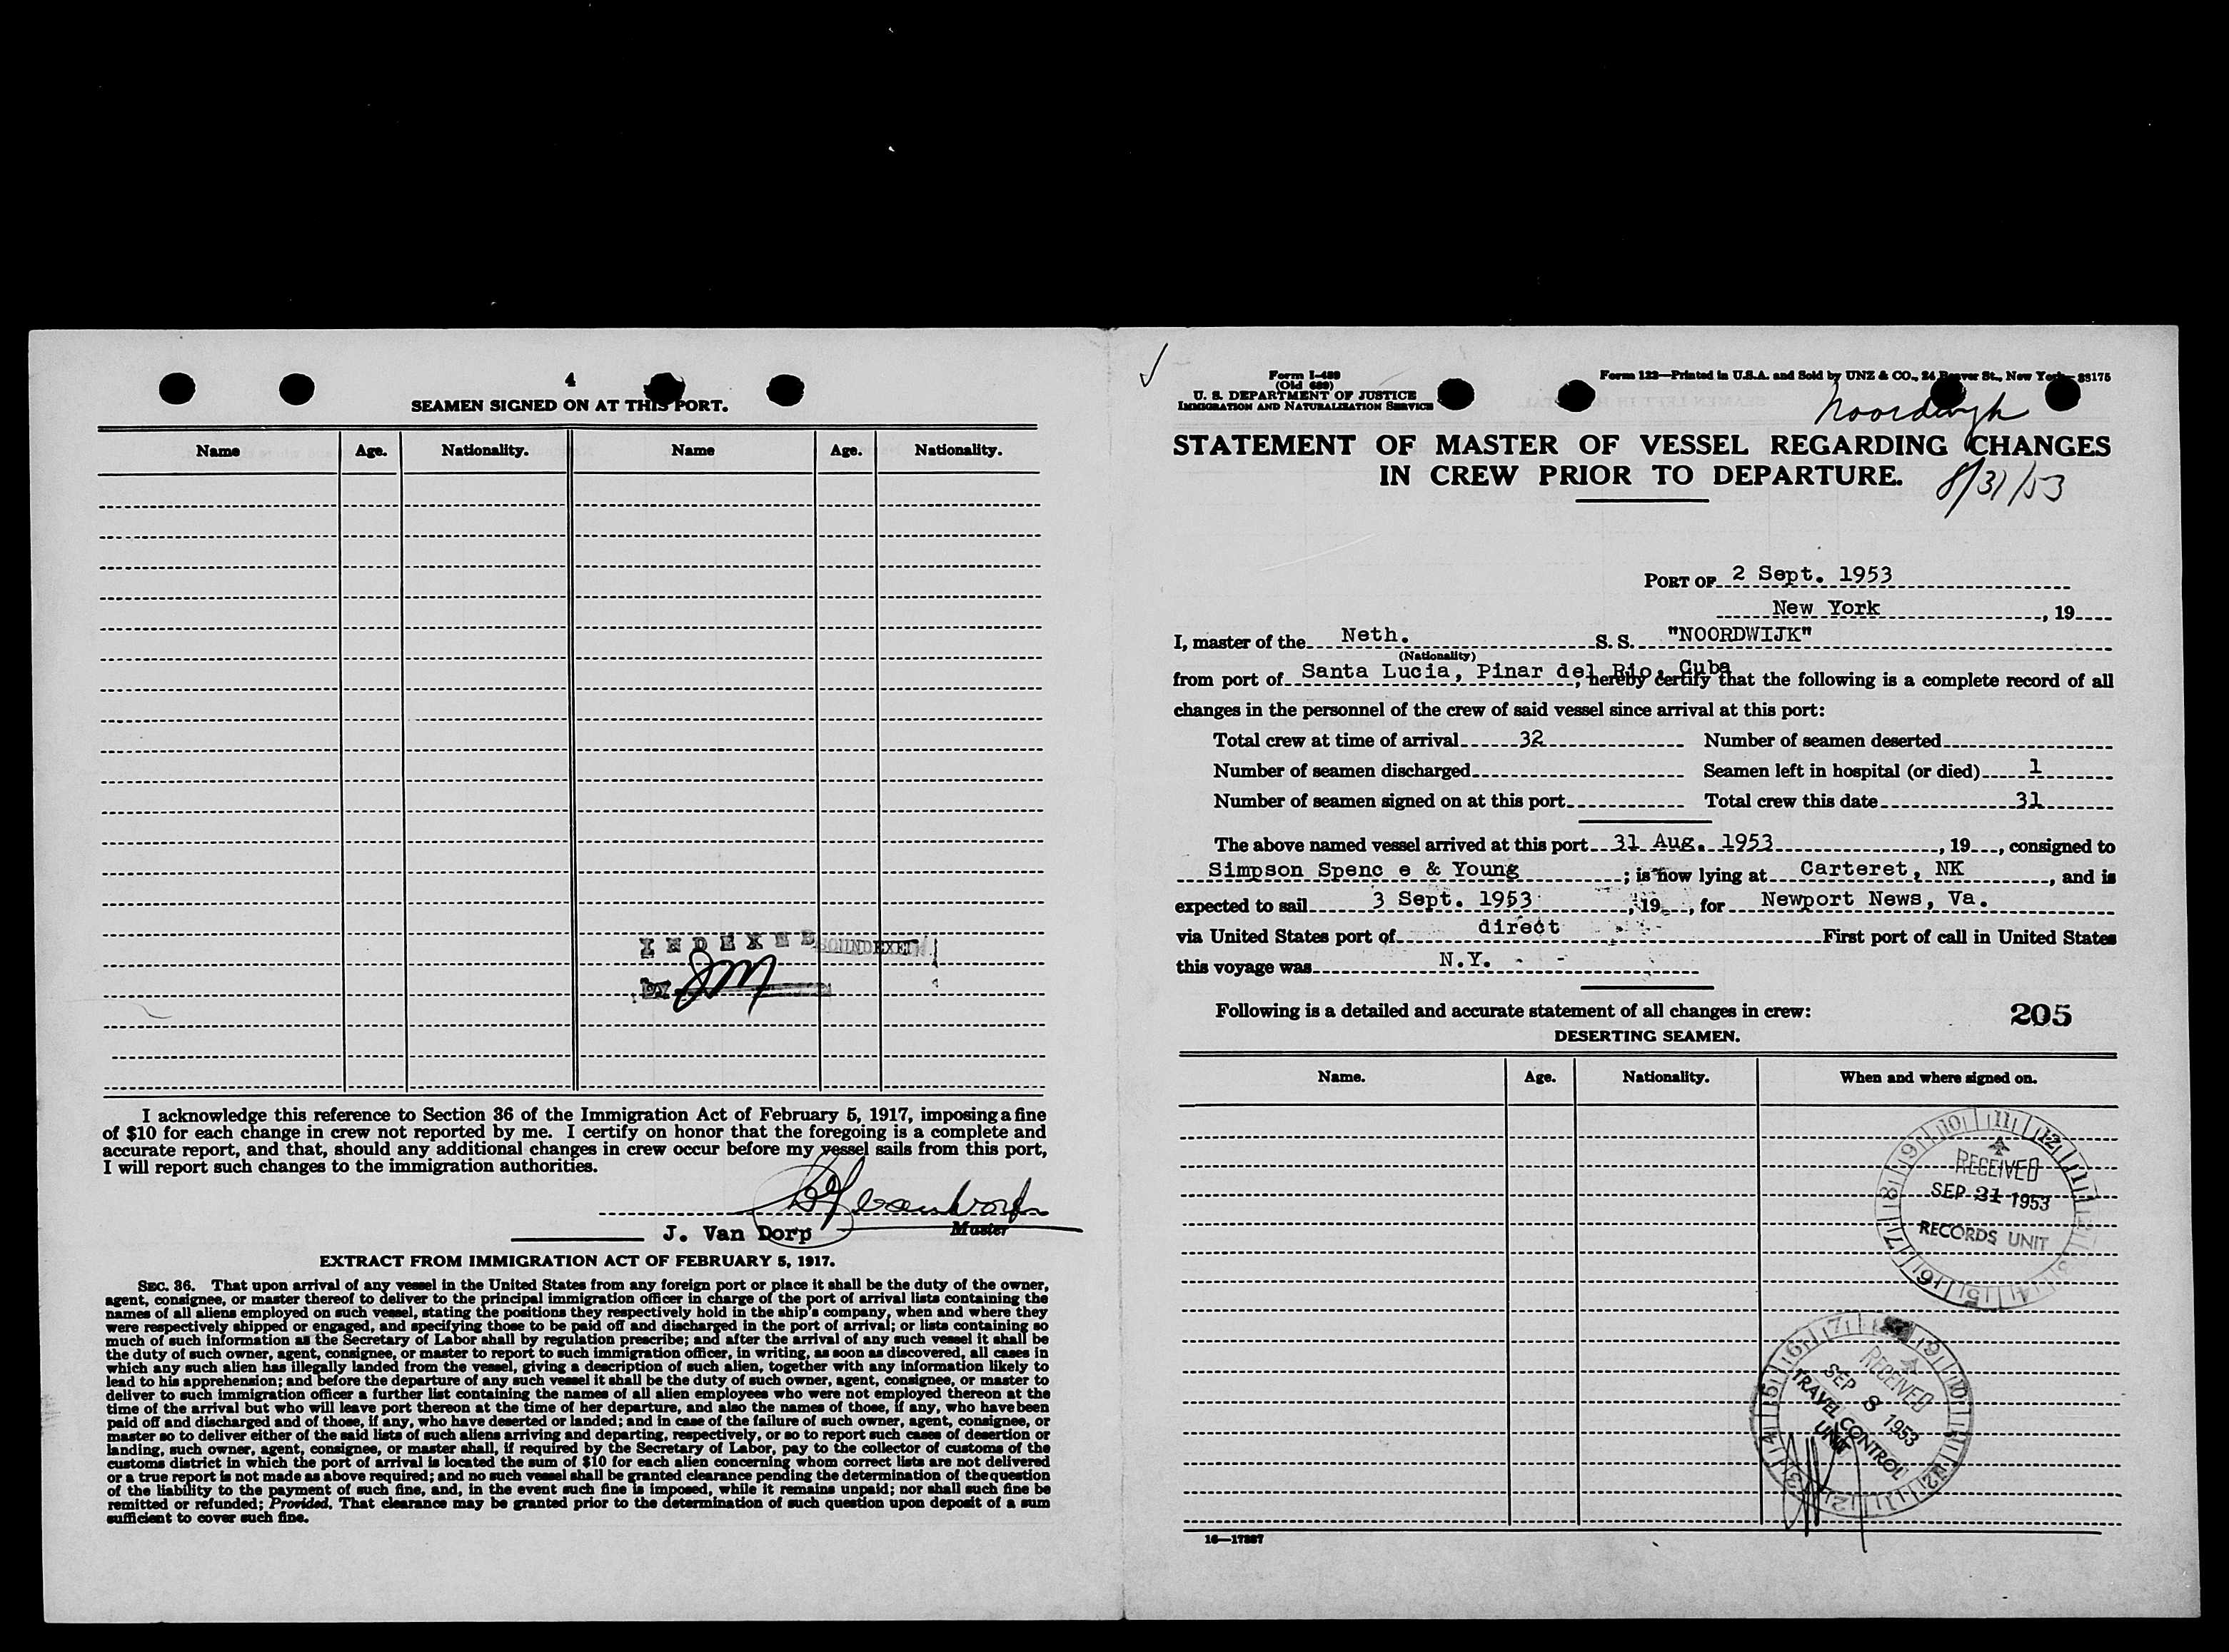 4
SEAMEN SIGNED ON AT THIS PORT.
Name Age. Nationality. Name Age. Nationality.
INDEXED SOUNDEXED
BY
I acknowledge this reference to Section 36 of the Immigration Act of February 5, 1917, imposing a fine
of $10 for each change in crew not reported by me. I certify on honor that the foregoing is a complete and
accurate report, and that, should any additional changes in crew occur before my vessel sails from this port,
I will report such changes to the immigration authorities.
J. Van Dorp Master
EXTRACT FROM IMMIGRATION ACT OF FEBRUARY 5, 1917.
SEC. 36. That upon arrival of any vessel in the United States from any foreign port or place it shall be the duty of the owner,
agent, consignee, or master thereof to deliver to the principal immigration officer in charge of the port of arrival lists containing the
names of all aliens employed on such vessel, stating the positions they respectively hold in the ship's company, when and where they
were respectively shipped or engaged, and specifying those to be paid off and discharged in the port of arrival; or lists containing so
much of such information as the Secretary of Labor shall by regulation prescribe; and after the arrival of any such vessel it shall be
the duty of such owner, agent, consignee, or master to report to such immigration officer, in writing, as soon as discovered, all cases in
which any such alien has illegally landed from the vessel, giving a description of such alien, together with any information likely to
lead to his apprehension; and before the departure of any such vessel it shall be the duty of such owner, agent, consignee, or master to
deliver to such immigration officer a further list containing the names of all alien employees who were not employed thereon at the
time of the arrival but who will leave port thereon at the time of her departure, and also the names of those, if any, who have been
paid off and discharged and of those, if any, who have deserted or landed; and in case of the failure of such owner, agent, consignee, or
master so to deliver either of the said lists of such aliens arriving and departing, respectively, or so to report such cases of desertion or
landing, such owner, agent, consignee, or master shall, if required by the Secretary of Labor, pay to the collector of customs of the
customs district in which the port of arrival is located the sum of $10 for each alien concerning whom correct lists are not delivered
or a true report is not made as above required; and no such vessel shall be granted clearance pending the determination of the question
of the liability to the payment of such fine, and, in the event such fine is imposed, while it remains unpaid; nor shall such fine be
remitted or refunded; Provided, That clearance may be granted prior to the determination of such question upon deposit of a sum
sufficient to cover such fine.
Form I-489
(Old 689)
U. S. DEPARTMENT OF JUSTICE
IMMIGRATION AND NATURALIZATION SERVICE
Form 122—Printed in U.S.A. and Sold by UNZ & CO., 24 Beaver St., New York—
Noordwyk
STATEMENT OF MASTER OF VESSEL REGARDING CHANGES
IN CREW PRIOR TO DEPARTURE.
8/31/53
PORT OF 2 Sept. 1953
New York, 19
I, master of the Neth. S. S. "NOORDWIJK"
(Nationality)
from port of Santa Lucia, Pinar del Rio, Cuba, hereby certify that the following is a complete record of all
changes in the personnel of the crew of said vessel since arrival at this port:
Total crew at time of arrival 32 Number of seamen deserted
Number of seamen discharged Seamen left in hospital (or died) 1
Number of seamen signed on at this port Total crew this date 31
The above named vessel arrived at this port 31 Aug. 1953, 19, consigned to
Simpson Spenc e & Young; is now lying at Carteret, NK, and is
expected to sail 3 Sept. 1953, 19, for Newport News, Va.
via United States port of direct First port of call in United States
this voyage was N.Y.
Following is a detailed and accurate statement of all changes in crew: 205
DESERTING SEAMEN.
Name. Age. Nationality. When and where signed on.
RECEIVED
SEP 21 1953
RECORDS UNIT
RECEIVED
SEP 8 1953
TRAVEL CONTROL
UNIT
16—17887